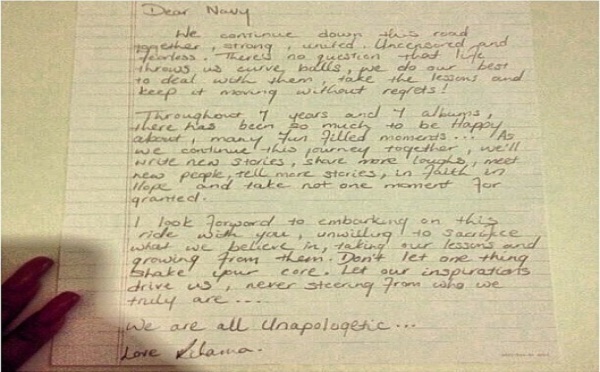 Dear Navy
We continue down this road
together, strong, united. Uncensored and
fearless. There's no question that life
throws us curve balls, we do our best
to deal with them, take the lessons and
keep it moving without regrets!
Throughout 7 years and 7 albums,
there has been so much to be happy
about, many fun filled moments... As
we continue this journey together, we'll
write new stories, share more laughs, meet
new people, tell more stories, in faith in
Hope and take not one moment for
granted.
I look forward to embarking on this
ride with you, unwilling to sacrifice
what we believe in, taking our lessons and
growing from them. Don't let one thing
shake your core. Let our inspirations
drive us, never steering from who we
truly are...
We are all Unapologetic...
Love Rihanna.